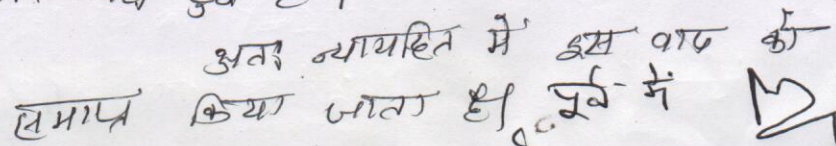 अतः न्यायहित में इस वाद को
समाप्त किया जाता है। पूर्व में